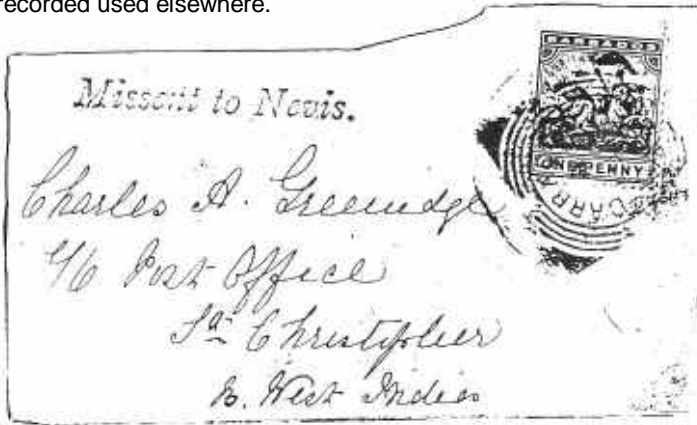 recorded used elsewhere.
Missent to Nevis.
BARBADOS
ONE PENNY
Charles A. Greenidge
c/o Post Office
St Christopher
B. West Indies